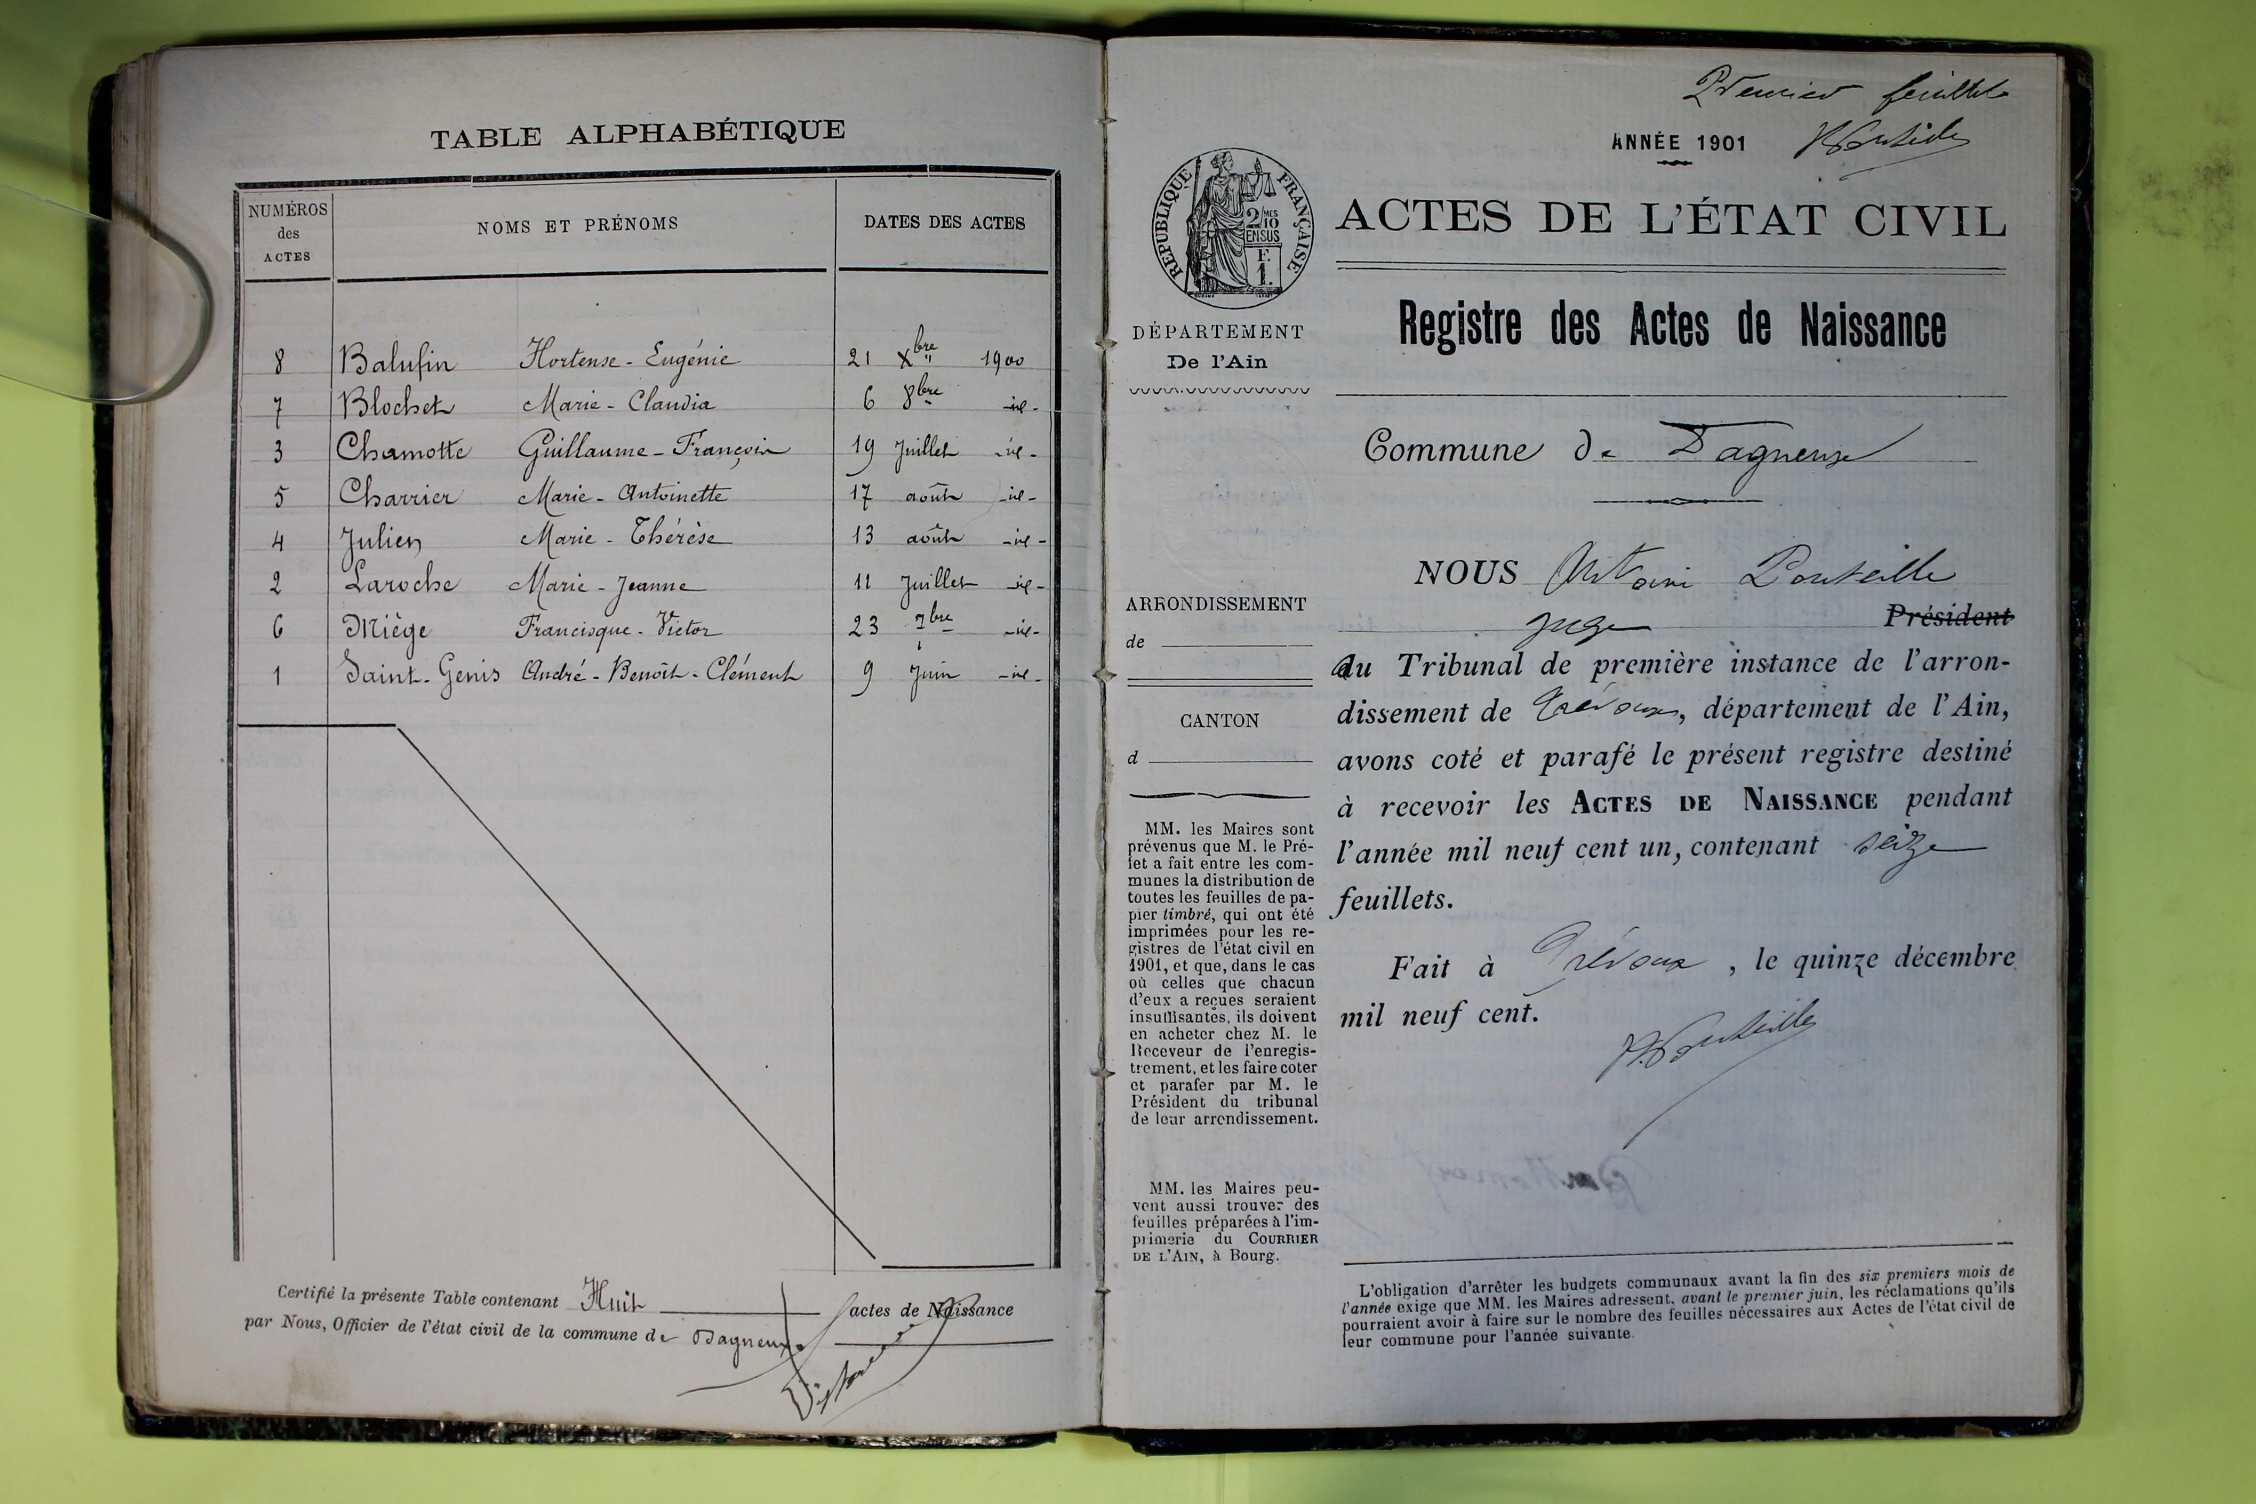 TABLE ALPHABÉTIQUE
NUMÉROS
des
ACTES
NOMS ET PRÉNOMS
DATES DES ACTES
8 Balufin Hortense - Eugénie 21 Xbre 1900
7 Blochet Marie - Claudia 6 8bre -id-
3 Chamotte Guillaume - François 19 Juillet -id-
5 Charrier Marie - Antoinette 17 août -id-
4 Julien Marie - Thérèse 13 août -id-
2 Laroche Marie - Jeanne 11 Juillet -id-
6 Miège Francisque - Victor 23 7bre -id-
1 Saint-Genis André - Benoît - Clément 9 Juin -id-
Certifié la présente Table contenant Huit actes de Naissance
par Nous, Officier de l'état civil de la commune de Dagneux
Premier feuillet
ANNÉE 1901
RÉPUBLIQUE FRANÇAISE
2/10 MES
EN SUS
F.
1.
ACTES DE L'ÉTAT CIVIL
DÉPARTEMENT
De l'Ain
Registre des Actes de Naissance
Commune de Dagneux
ARRONDISSEMENT
de
CANTON
d
MM. les Maires sont
prévenus que M. le Pré-
fet a fait entre les com-
munes la distribution de
toutes les feuilles de pa-
pier timbré, qui ont été
imprimées pour les re-
gistres de l'état civil en
1901, et que, dans le cas
où celles que chacun
d'eux a reçues seraient
insuffisantes, ils doivent
en acheter chez M. le
Receveur de l'enregis-
trement, et les faire coter
et parafer par M. le
Président du tribunal
de leur arrondissement.
MM. les Maires peu-
vent aussi trouver des
feuilles préparées à l'im-
primerie du COURRIER
DE L'AIN, à Bourg.
NOUS Antoine Pouteille
juge Président
au Tribunal de première instance de l'arron-
dissement de Trévoux, département de l'Ain,
avons coté et parafé le présent registre destiné
à recevoir les ACTES DE NAISSANCE pendant
l'année mil neuf cent un, contenant seize
feuillets.
Fait à Trévoux, le quinze décembre
mil neuf cent.
A. Pouteille
L'obligation d'arrêter les budgets communaux avant la fin des six premiers mois de
l'année exige que MM. les Maires adressent, avant le premier juin, les réclamations qu'ils
pourraient avoir à faire sur le nombre des feuilles nécessaires aux Actes de l'état civil de
leur commune pour l'année suivante.